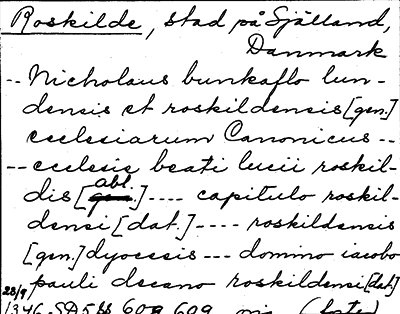 Roskilde, stad på Själland,
Danmark
-- Nicholaus bunkaflo lun-
densis et roskildensis [gen.]
ecclesiarum Canonicus --
-- ecclesie beati lucii roskil-
abl.
dis [gen.] ---- capitulo roskil-
densi [dat.] ---- roskildensis
[gen.] dyocesis --- domino iacobo
pauli decano roskildensi [dat]
28/9
1346 SD5 609